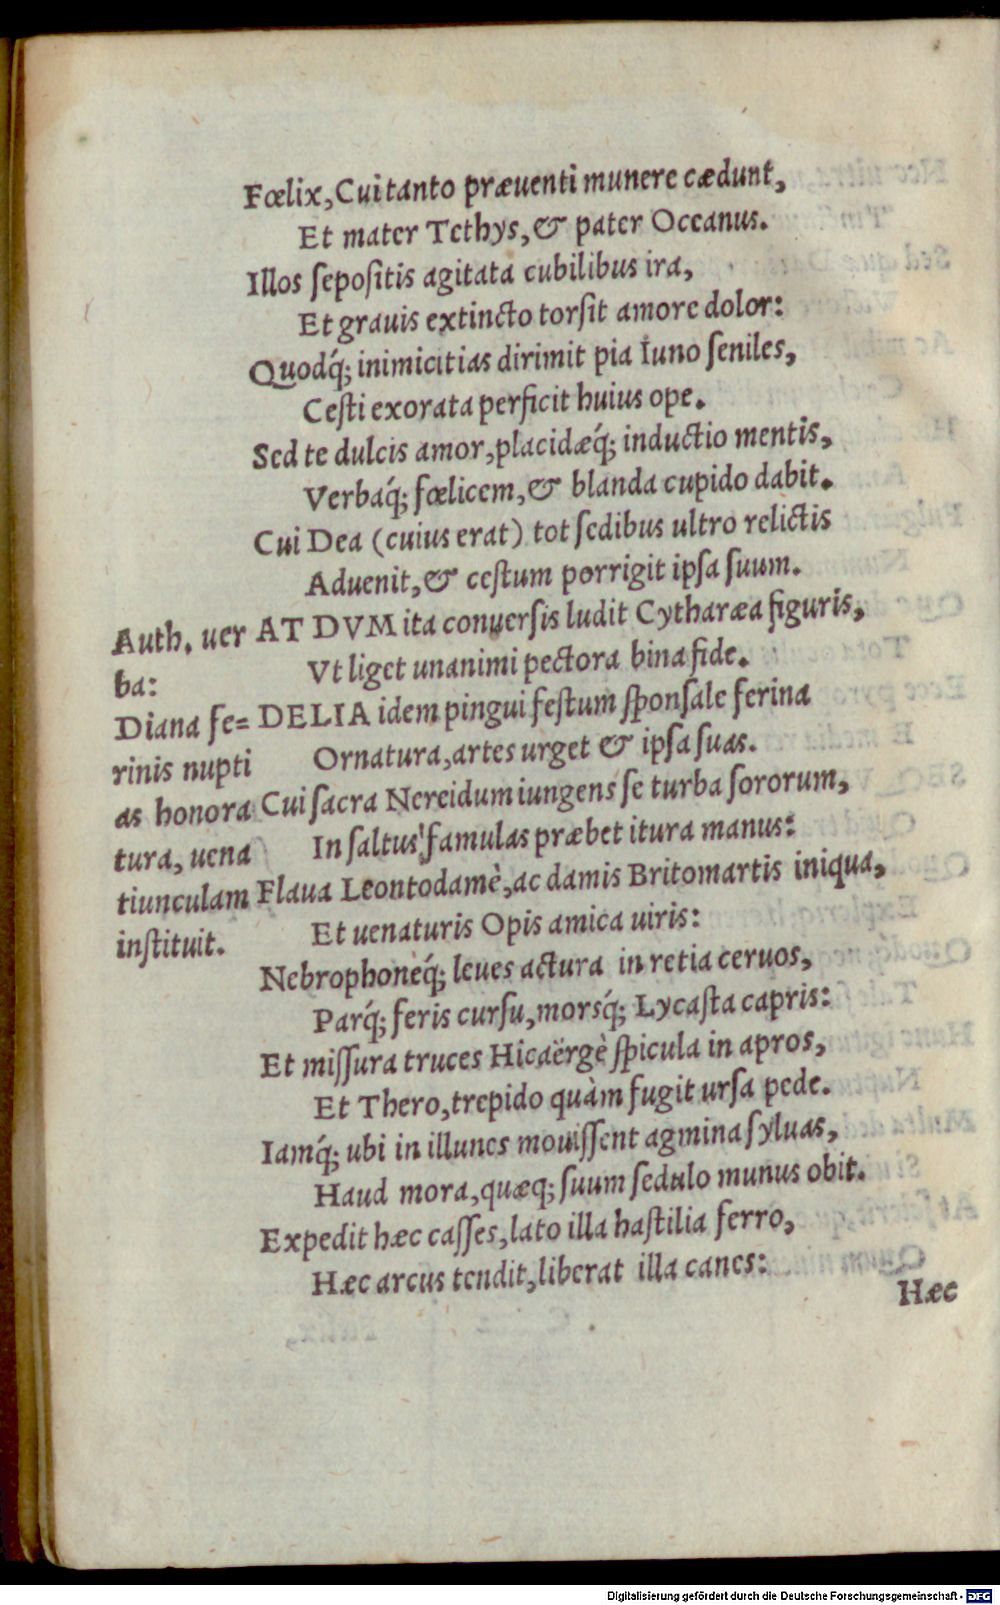 Fœlix, Cui tanto præuenti munere cædunt,
Et mater Tethys, & pater Oceanus.
Illos ſepoſitis agitata cubilibus ira,
Et grauis extincto torſit amore dolor:
Quodq́; inimicitias dirimit pia Iuno ſeniles,
Ceſti exorata perficit huius ope.
Sed te dulcis amor, placidæq́; inductio mentis,
Verbaq́; fœlicem, & blanda cupido dabit.
Cui Dea (cuius erat) tot ſedibus ultro relictis
Aduenit, & ceſtum porrigit ipſa ſuum.
AT DVM ita conuerſis ludit Cytharæa figuris,
Vt liget unanimi pectora bina fide.
DELIA idem pingui feſtum ſponſale ferina
Ornatura, artes urget & ipſa ſuas.
Cui ſacra Nereidum iungens ſe turba ſororum,
In ſaltus famulas præbet itura manus:
Flaua Leontodamè, ac damis Britomartis iniqua,
Et uenaturis Opis amica uiris:
Nebrophoneq́; leues actura in retia ceruos,
Parq́; feris curſu, morsq́; Lycaſta capris:
Et miſſura truces Hicaërgè ſpicula in apros,
Et Thero, trepido quàm fugit urſa pede.
Iamq́; ubi in illunes mouiſſent agmina ſyluas,
Haud mora, quæq; ſuum ſedulo munus obit.
Expedit hæc caſſes, lato illa haſtilia ferro,
Hæc arcus tendit, liberat illa canes:
Hæc
Auth. uer
ba:
Diana fe=
rinis nupti
as honora
tura, uena
tiunculam
inſtituit.
Digitalisierung gefördert durch die Deutsche Forschungsgemeinschaft - DFG